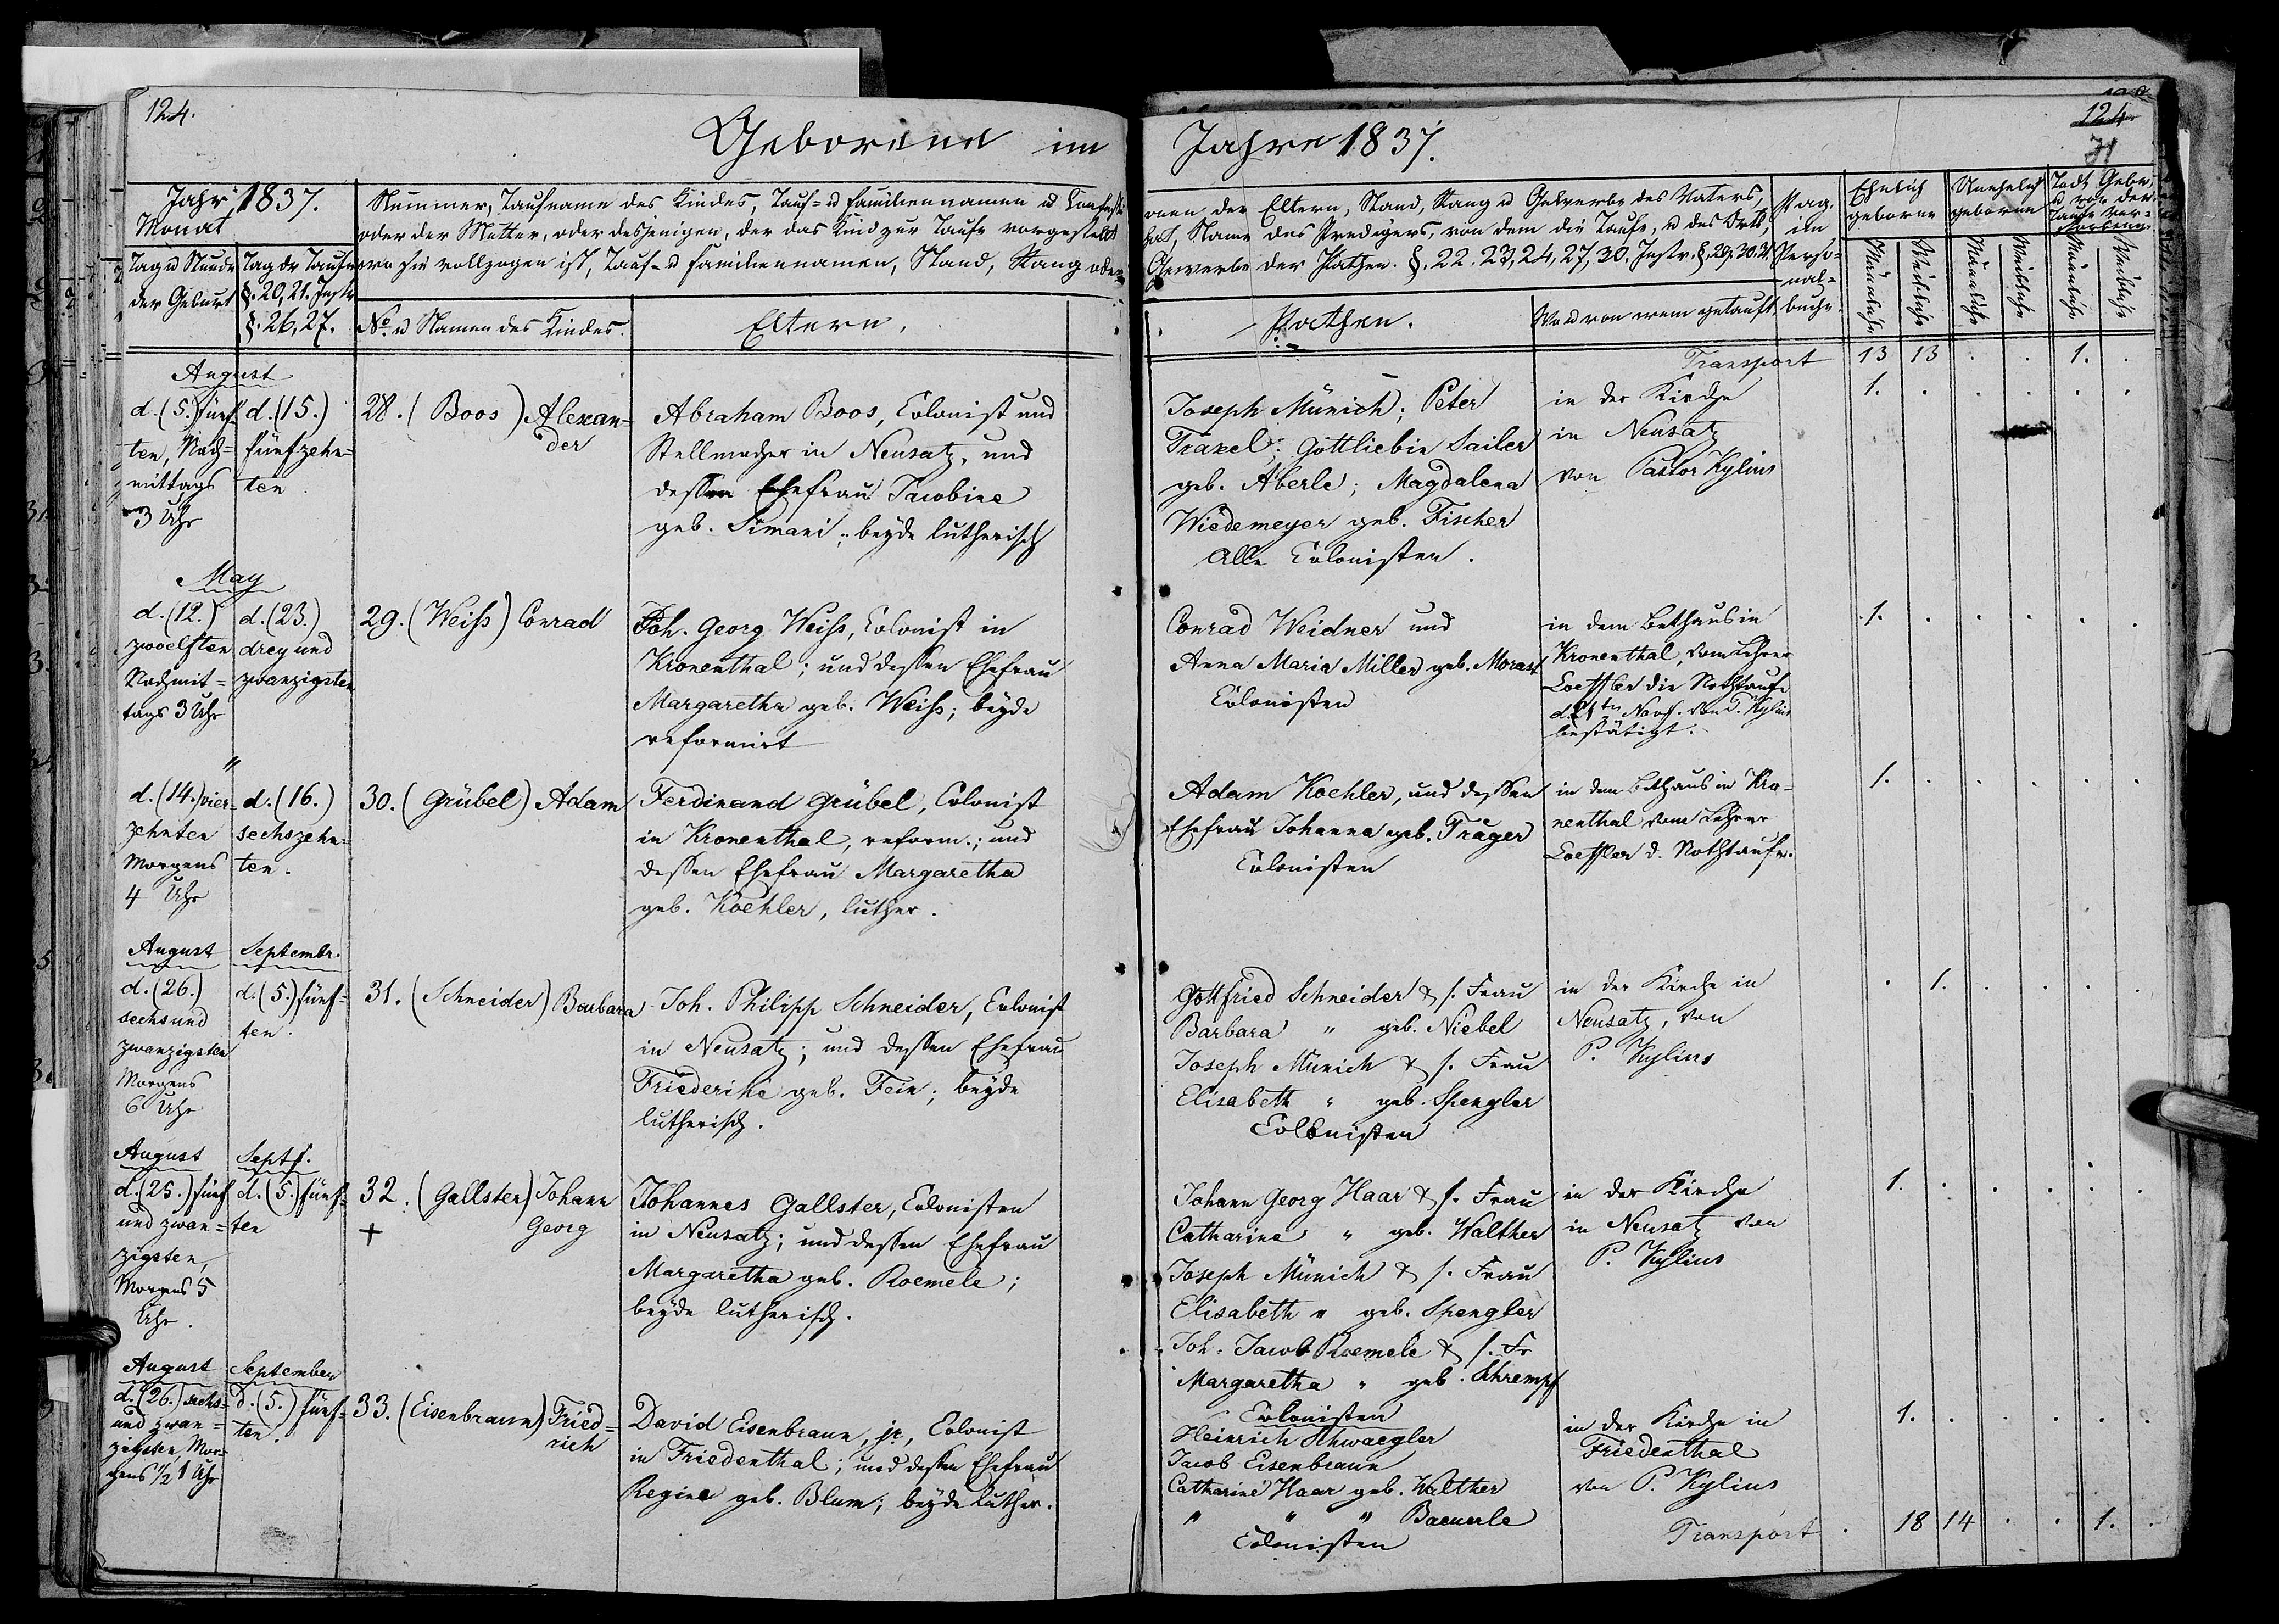 124.
Geborene im Jahre 1837.
124
71
Jahr 1837.
Monat
Tag u Stunde
der Geburt
Tag der Taufe
§. 20, 21. Instr
§. 26, 27.
Nummer, Taufname des Kindes, Tauf- u Familiennamen u Confessi-
oder der Mutter, oder desjenigen, der das Kind zur Taufe vorgestellt
wo sie vollzogen ist, Tauf- u Familiennamen, Stand, Rang oder
No. u Namen des Kindes.
Eltern.
onen der Eltern, Stand, Rang u Gewerbe des Vaters,
hat, Name des Predigers, von dem die Taufe, u des Orts,
Gewerbe der Pathen. §. 22. 23, 24, 27, 30. Instr. §. 29. 30. 31.
Pathen.
Wo u von wem getauft.
Pag.
im
Perso-
nal-
buche.
Ehelich
geborne
Unehelich
geborne
Todt Gebor.
u vor der
Taufe ver-
storbene
Männliche
Weibliche
Männliche
Weibliche
Männliche
Weibliche
Transport 13 13 . . 1. .
August
d. (5.) fünf-
ten, Nach-
mittags
3 Uhr
d. (15.)
fünfzehn-
ten
28. (Boos) Alexan-
der
Abraham Boos, Colonist und
Stellmacher in Neusatz, und
dessen Ehefrau Jacobine
geb. Simani; beyde lutherisch
Joseph Münich; Peter
Traxel; Gottliebin Sailer
geb. Aberle; Magdalena
Wiedemeyer geb. Fischer
alle Colonisten.
in der Kirche
in Neusatz
von Pastor Kylius
1. . . . . .
May
d. (12.)
zwoelften
Nachmit-
tags 3 Uhr
d. (23.)
drey und
zwanzigsten
29. (Weiss) Conrad
Joh. Georg Weiss, Colonist in
Kronenthal; und dessen Ehefrau
Margaretha geb. Weiss; beyde
reformirt
Conrad Weidner und
Anna Maria Miller geb. Morast
Colonisten
in dem Bethaus in
Kronenthal, vom Lehrer
Loeffler die Nothtaufe
d. 21ten Novb. von P. Kylius
bestätigt.
1. . . . . .
"
d. (14.) vier-
zehnten
Morgens
4 Uhr
d. (16.)
sechszehn-
ten.
30. (Grübel) Adam
Ferdinand Grübel, Colonist
in Kronenthal, reform.; und
dessen Ehefrau Margaretha
geb. Koehler, luther.
Adam Koehler, und dessen
Ehefrau Johanna geb. Träger
Colonisten
in dem Bethaus in Kro-
nenthal vom Lehrer
Loeffler d. Nothtaufe.
1. . . . . .
August
d. (26.)
sechs und
zwanzigsten
Morgens
6 Uhr
Septembr.
d. (5.) fünf-
ten.
31. (Schneider) Barbara
Joh. Philipp Schneider, Colonist
in Neusatz; und dessen Ehefrau
Friederike geb. Fein; beyde
lutherisch.
Gottfried Schneider & s. Frau
Barbara " geb. Niebel
Joseph Münich & s. Frau
Elisabeth " geb. Spengler
Colonisten
in der Kirche in
Neusatz, von
P. Kylius
. 1. . . . .
August
d. (25.) fünf
und zwan-
zigsten,
Morgens 5
Uhr.
Septb.
d. (5.) fünf-
ten
32. (Gallster) Johann
+ Georg
Johannes Gallster, Colonisten
in Neusatz; und dessen Ehefrau
Margaretha geb. Roemele;
beyde lutherisch.
Johann Georg Haar & s. Frau
Catharine " geb. Walther
Joseph Münich & s. Frau
Elisabeth " geb. Spengler
Joh. Jacob Roemele & s. Fr
Margaretha " geb. Schrempf
Colonisten
in der Kirche
in Neusatz von
P. Kylius
1. . . . . .
August
d. (26.) sechs-
und zwan-
zigsten, Mor-
gens 1/2 1 Uhr
September
d. (5.) fünf-
ten.
33. (Eisenbraun) Fried-
rich
David Eisenbraun, jr., Colonist
in Friedenthal; und dessen Ehefrau
Regine geb. Blum; beyde luther.
Heinrich Schwaegler
Jacob Eisenbraun
Catharine Haar geb. Walther
" " " Baeuerle
Colonisten
in der Kirche in
Friedenthal
von P. Kylius
1. . . . . .
Transport . 18 14 . . 1. .